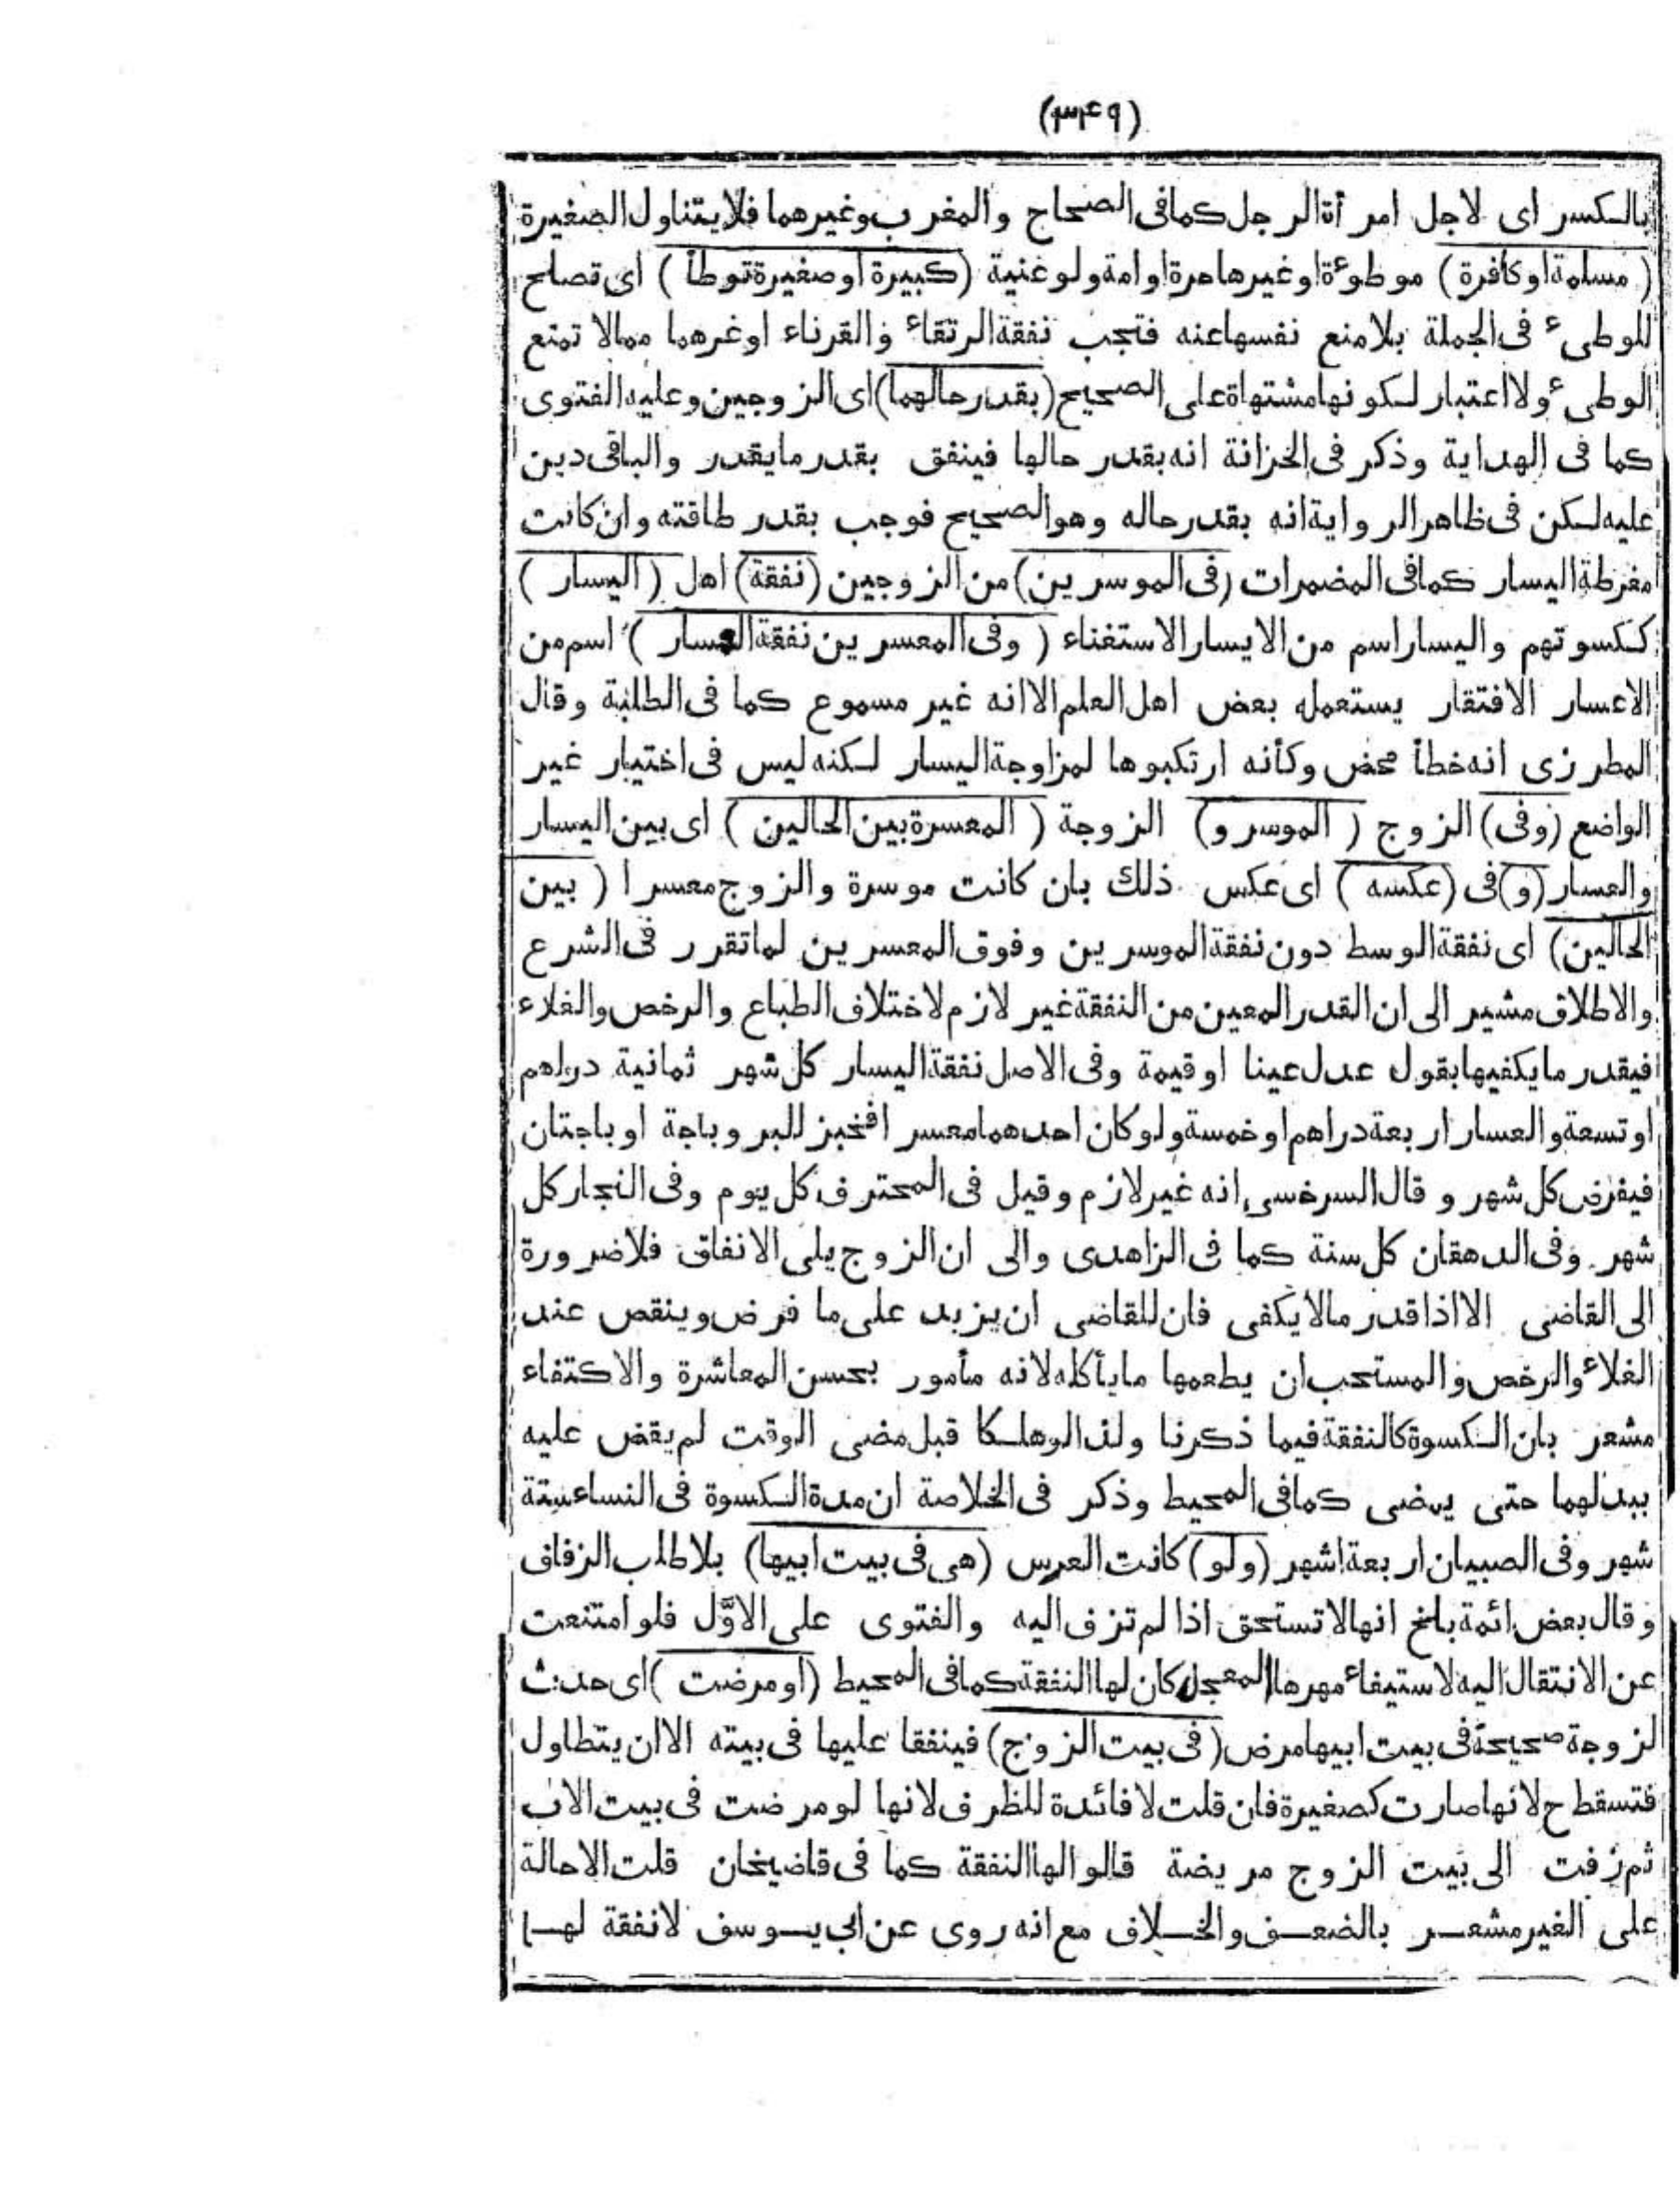 (٣٤٩)
بالكسر اى لاجل امرأة الرجل كما فى الصحاح والمغرب وغيرهما فلا يتناول الصغيرة
(مسلمة او كافرة) موطوءة او غيرها حرة او امة ولو غنية (كبيرة او صغيرة توطأ) اى تصلح
للوطىء فى الجملة بلا منع نفسها عنه فتجب نفقة الرتقاء والقرناء او غرهما ممالا تمنع
الوطىء ولا اعتبار لكونها مشتهاة على الصحيح (بقدر حالهما) اى الزوجين وعليه الفتوى
كما فى الهداية وذكر فى الخزانة انه بقدر حالها فينفق بقدر ما يقدر والباقى دين
عليه لكن فى ظاهر الرواية انه بقدر حاله وهو الصحيح فوجب بقدر طاقته وان كانت
مفرطة اليسار كما فى المضمرات (فى الموسرين) من الزوجين (نفقة) اهل (اليسار)
ككسوتهم واليسار اسم من الايسار الاستغناء (وفى المعسرين نفقة العسار) اسم من
الاعسار الافتقار يستعمله بعض اهل العلم الا انه غير مسموع كما فى الطلبة وقال
المطرزى انه خطأ محض وكأنه ارتكبوها لمزاوجة اليسار لكنه ليس فى اختيار غير
الواضع (وفى) الزوج (الموسر و) الزوجة (المعسرة بين الحالين) اى بين اليسار
والعسار (و) فى (عكسه) اى عكس ذلك بان كانت موسرة والزوج معسرا (بين
الحالين) اى نفقة الوسط دون نفقة الموسرين وفوق المعسرين لما تقرر فى الشرع
والاطلاق مشير الى ان القدر المعين من النفقة غير لازم لاختلاف الطباع والرخص والغلاء
فيقدر ما يكفيها بقول عدل عينا او قيمة وفى الاصل نفقة اليسار كل شهر ثمانية دراهم
او تسعة والعسار اربعة دراهم او خمسة ولو كان احدهما معسرا فخبز للبر وباجة او باجتان
فيفرض كل شهر وقال السرخسى انه غير لازم وقيل فى المحترف كل يوم وفى النجار كل
شهر وفى الدهقان كل سنة كما فى الزاهدى والى ان الزوج يلى الانفاق فلا ضرورة
الى القاضى الا اذا قدر مالا يكفى فان للقاضى ان يزيد على ما فرض وينقص عند
الغلاء والرخص والمستحب ان يطعمها ما يأكله لانه مأمور بحسن المعاشرة والاكتفاء
مشعر بان الكسوة كالنفقة فيما ذكرنا ولذا لو هلكا قبل مضى الوقت لم يقض عليه
ببدلهما حتى يمضى كما فى المحيط وذكر فى الخلاصة ان مدة الكسوة فى النساء ستة
شهر وفى الصبيان اربعة اشهر (ولو) كانت العرس (هى فى بيت ابيها) بلا طلب الزفاف
وقال بعض ائمة بلخ انها لا تستحق اذا لم تزف اليه والفتوى على الاوّل فلو امتنعت
عن الانتقال اليه لاستيفاء مهرها المعجل كان لها النفقة كما فى المحيط (او مرضت) اى حدث
لزوجة صحيحة فى بيت ابيها مرض (فى بيت الزوج) فينفقا عليها فى بيته الا ان يتطاول
فتسقط ح لانها صارت كصغيرة فان قلت لا فائدة للظرف لانها لو مرضت فى بيت الاب
ثم زفت الى بيت الزوج مريضة قالوا لها النفقة كما فى قاضيخان قلت الاحالة
على الغير مشعر بالضعف والخلاف مع انه روى عن ابى يوسف لا نفقة لها